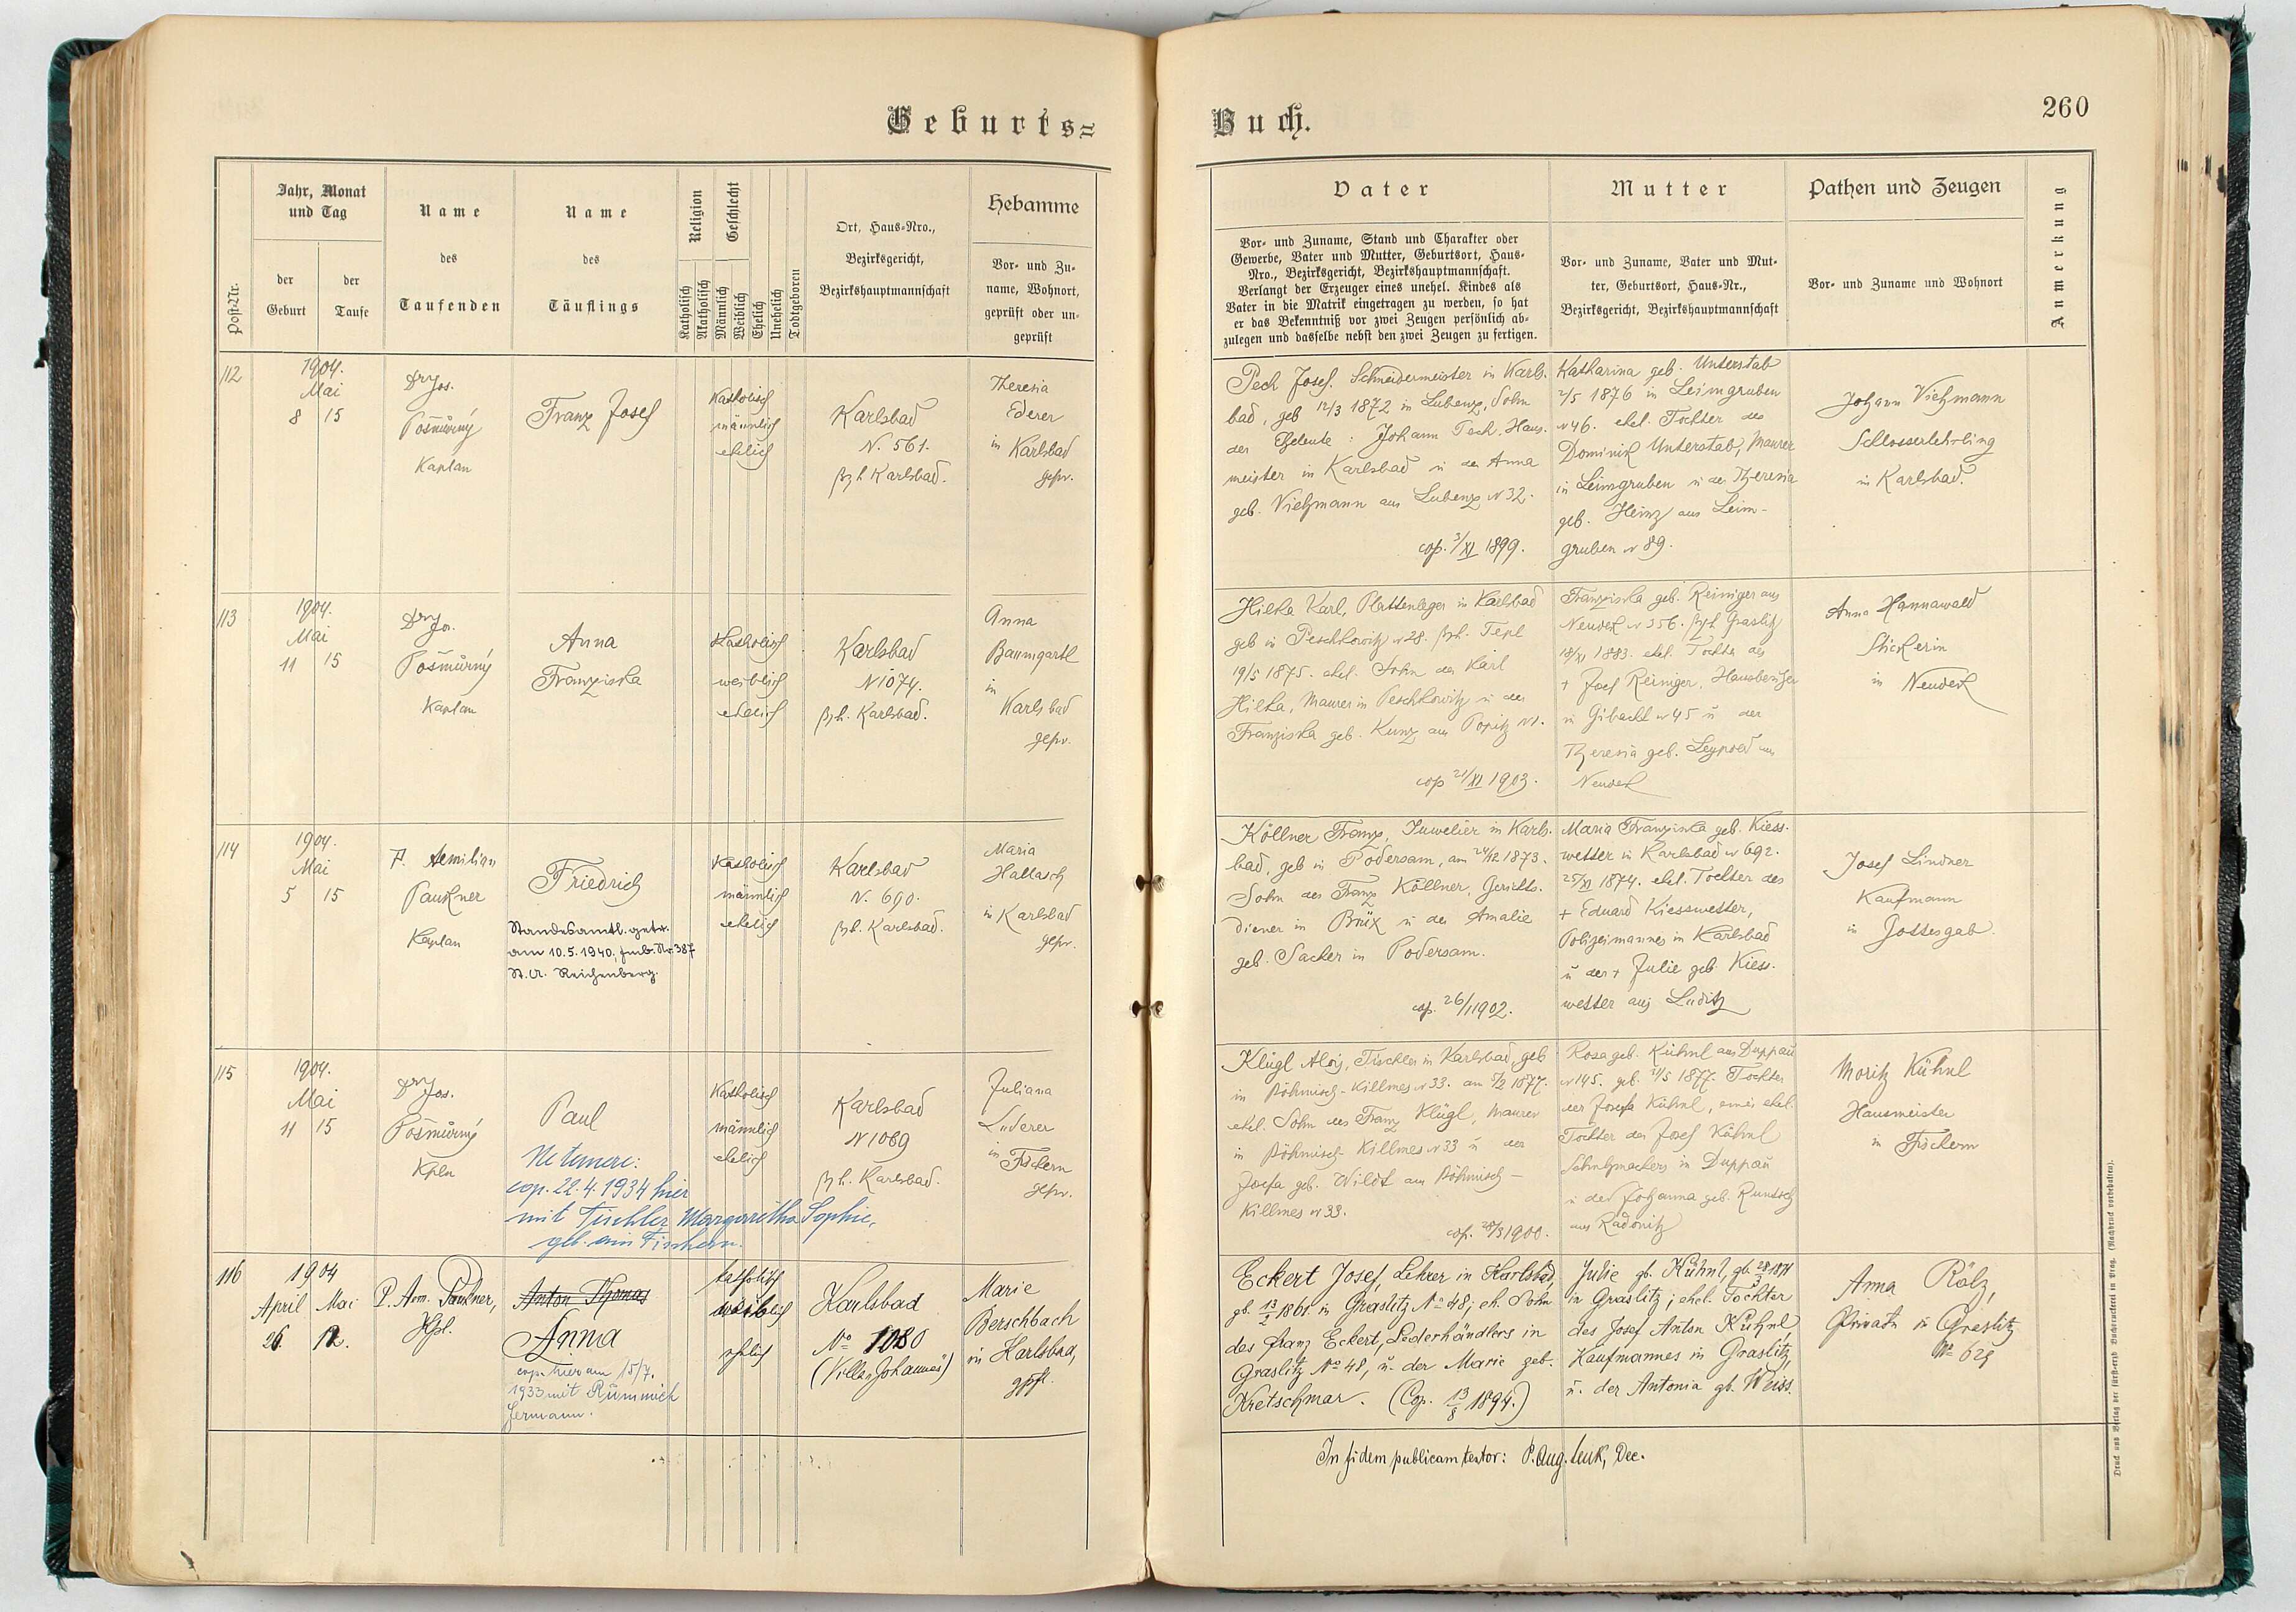 Geburts=
Post-Nr.
Jahr, Monat
und Tag
der
Geburt
der
Taufe
Name
des
Taufenden
Name
des
Täuflings
Religion
Katholisch
Akatholisch
Geschlecht
Männlich
Weiblich
Ehelich
Unehelich
Todtgeboren
Ort, Haus-Nro.,
Bezirksgericht,
Bezirkshauptmannschaft
Hebamme
Vor- und Zu-
name, Wohnort,
geprüft oder un-
geprüft
112
1904.
Mai
8 15
Dr Jos.
Pošmůrný
Kaplan
Franz Josef
Katholisch
männlich
ehelich
Karlsbad
N. 561.
Bzh Karlsbad.
Theresia
Ederer
in Karlsbad
gepr.
113
1904.
Mai
11 15
Dr Jos.
Pošmůrný
Kaplan
Anna
Franziska
Katholisch
weiblich
ehelich
Karlsbad
N 1074.
Bzh. Karlsbad.
Anna
Baumgartl
in
Karlsbad
gepr.
114
1904.
Mai
5 15
P. Aemilian
Paukner
Kaplan
Friedrich
Standesamtl. getr.
am 10.5.1940, Fmb. Nr. 387
St. A. Reichenberg.
Katholisch
männlich
ehelich
Karlsbad
N. 690.
Bzh. Karlsbad.
Maria
Hallasch
in Karlsbad
gepr.
115
1904.
Mai
11 15
Dr Jos.
Pošmůrný
Kpln
Paul
Ne temere:
cop. 22.4.1934 hier
mit Tischler Margaritha Sophie,
geb. aus Fischern.
Katholisch
männlich
ehelich
Karlsbad
N 1069
Bzh. Karlsbad.
Juliana
Luderer
in Fischern
gepr.
116
1904
April Mai
26. 12.
P. Aem. Paukner,
Kpl.
Anton Thomas
Anna
cop. hier am 15/7.
1933 mit Rümmich
Hermann.
katholisch
weiblich
ehelich
Karlsbad
No 1080
(Villa „Johannes")
Marie
Berschbach
in Karlsbad,
gpft.
Buch.
260
Vater
Vor- und Zuname, Stand und Charakter oder
Gewerbe, Vater und Mutter, Geburtsort, Haus-
Nro., Bezirksgericht, Bezirkshauptmannschaft.
Verlangt der Erzeuger eines unehel. Kindes als
Vater in die Matrik eingetragen zu werden, so hat
er das Bekenntniß vor zwei Zeugen persönlich ab-
zulegen und dasselbe nebst den zwei Zeugen zu fertigen.
Mutter
Vor- und Zuname, Vater und Mut-
ter, Geburtsort, Haus-Nr.,
Bezirksgericht, Bezirkshauptmannschaft
Pathen und Zeugen
Vor- und Zuname und Wohnort
Anmerkung
Pech Josef. Schneidermeister in Karls-
bad, geb 12/3 1872 in Lubenz, Sohn
der Eheleute: Johann Pech, Haus-
meister in Karlsbad u der Anna
geb. Viehmann aus Lubenz N 32.
cop. 5/XI 1899.
Katharina geb. Unterstab
2/5 1876 in Leimgruben
N 46. ehel. Tochter des
Dominik Unterstab, Maurer
in Leimgruben u der Theresia
geb. Heinz aus Leim-
gruben N 89.
Johann Viehmann
Schlosserlehrling
in Karlsbad.
Hilka Karl, Plattenleger in Karlsbad
geb in Peschkowitz N 28. Bzh. Tepl
19/5 1875. ehel. Sohn des Karl
Hilka, Maurer in Peschkowitz u der
Franziska geb. Kunz aus Popitz N 1.
cop 21/XI 1903.
Franziska geb. Reiniger aus
Neudek N 356. Bzh. Graslitz
18/XI 1883. ehel. Tochter des
+ Josef Reiniger, Hausbesitzer
in Gibacht N 45 u der
Theresia geb. Leypold aus
Neudek
Anna Hannawald
Stickerin
in Neudek
Köllner Franz, Juwelier in Karls-
bad, geb in Podersam, am 24/12 1873.
Sohn des Franz Köllner, Gerichts-
diener in Brüx u der Amalie
geb. Sacher in Podersam.
cop. 26/1 1902.
Maria Franziska geb. Kiess-
wetter in Karlsbad N 692.
25/XI 1874. ehel. Tochter des
+ Eduard Kiesswetter,
Polizeimannes in Karlsbad
u der + Julie geb. Kiess-
wetter aus Luditz
Josef Lindner
Kaufmann
in Gottesgab.
Klügl Alois, Tischler in Karlsbad, geb
in Böhmisch-Killmes N 33. am 7/2 1877.
ehel. Sohn des Franz Klügl, Maurer
in Böhmisch Killmes N 33 u der
Josefa geb. Wildt aus Böhmisch-
Killmes N 33.
cop. 1900.
Rosa geb. Kühnl aus Duppau
N 145. geb. 1877. Tochter
der Josefa Kühnl, einer ehel.
Tochter des Josef Kühnl
Schuhmachers in Duppau
u der Johanna geb. Runtsch
aus Radonitz
Moritz Kühnl
Hausmeister
in Fischern
Eckert Josef, Lehrer in Karlsbad,
gb. 13/2 1861. in Graslitz No 48; eh. Sohn
des Franz Eckert, Lederhändlers in
Graslitz No 48, u. der Marie geb.
Kretschmar. (Cop. 13/8 1894.)
Julie gb. Kühnl, gb. 28/3 1871
in Graslitz; ehel. Tochter
des Josef Anton Kühnl
Kaufmannes in Graslitz,
u. der Antonia gb. Weiss.
Anna Rölz,
Private in Graslitz
No 629
In fidem publicam testor: P. Aug. Lenk, Dec.
Druck und Verlag der fürst-erzb. Buchdruckerei in Prag. (Nachdruck vorbehalten).